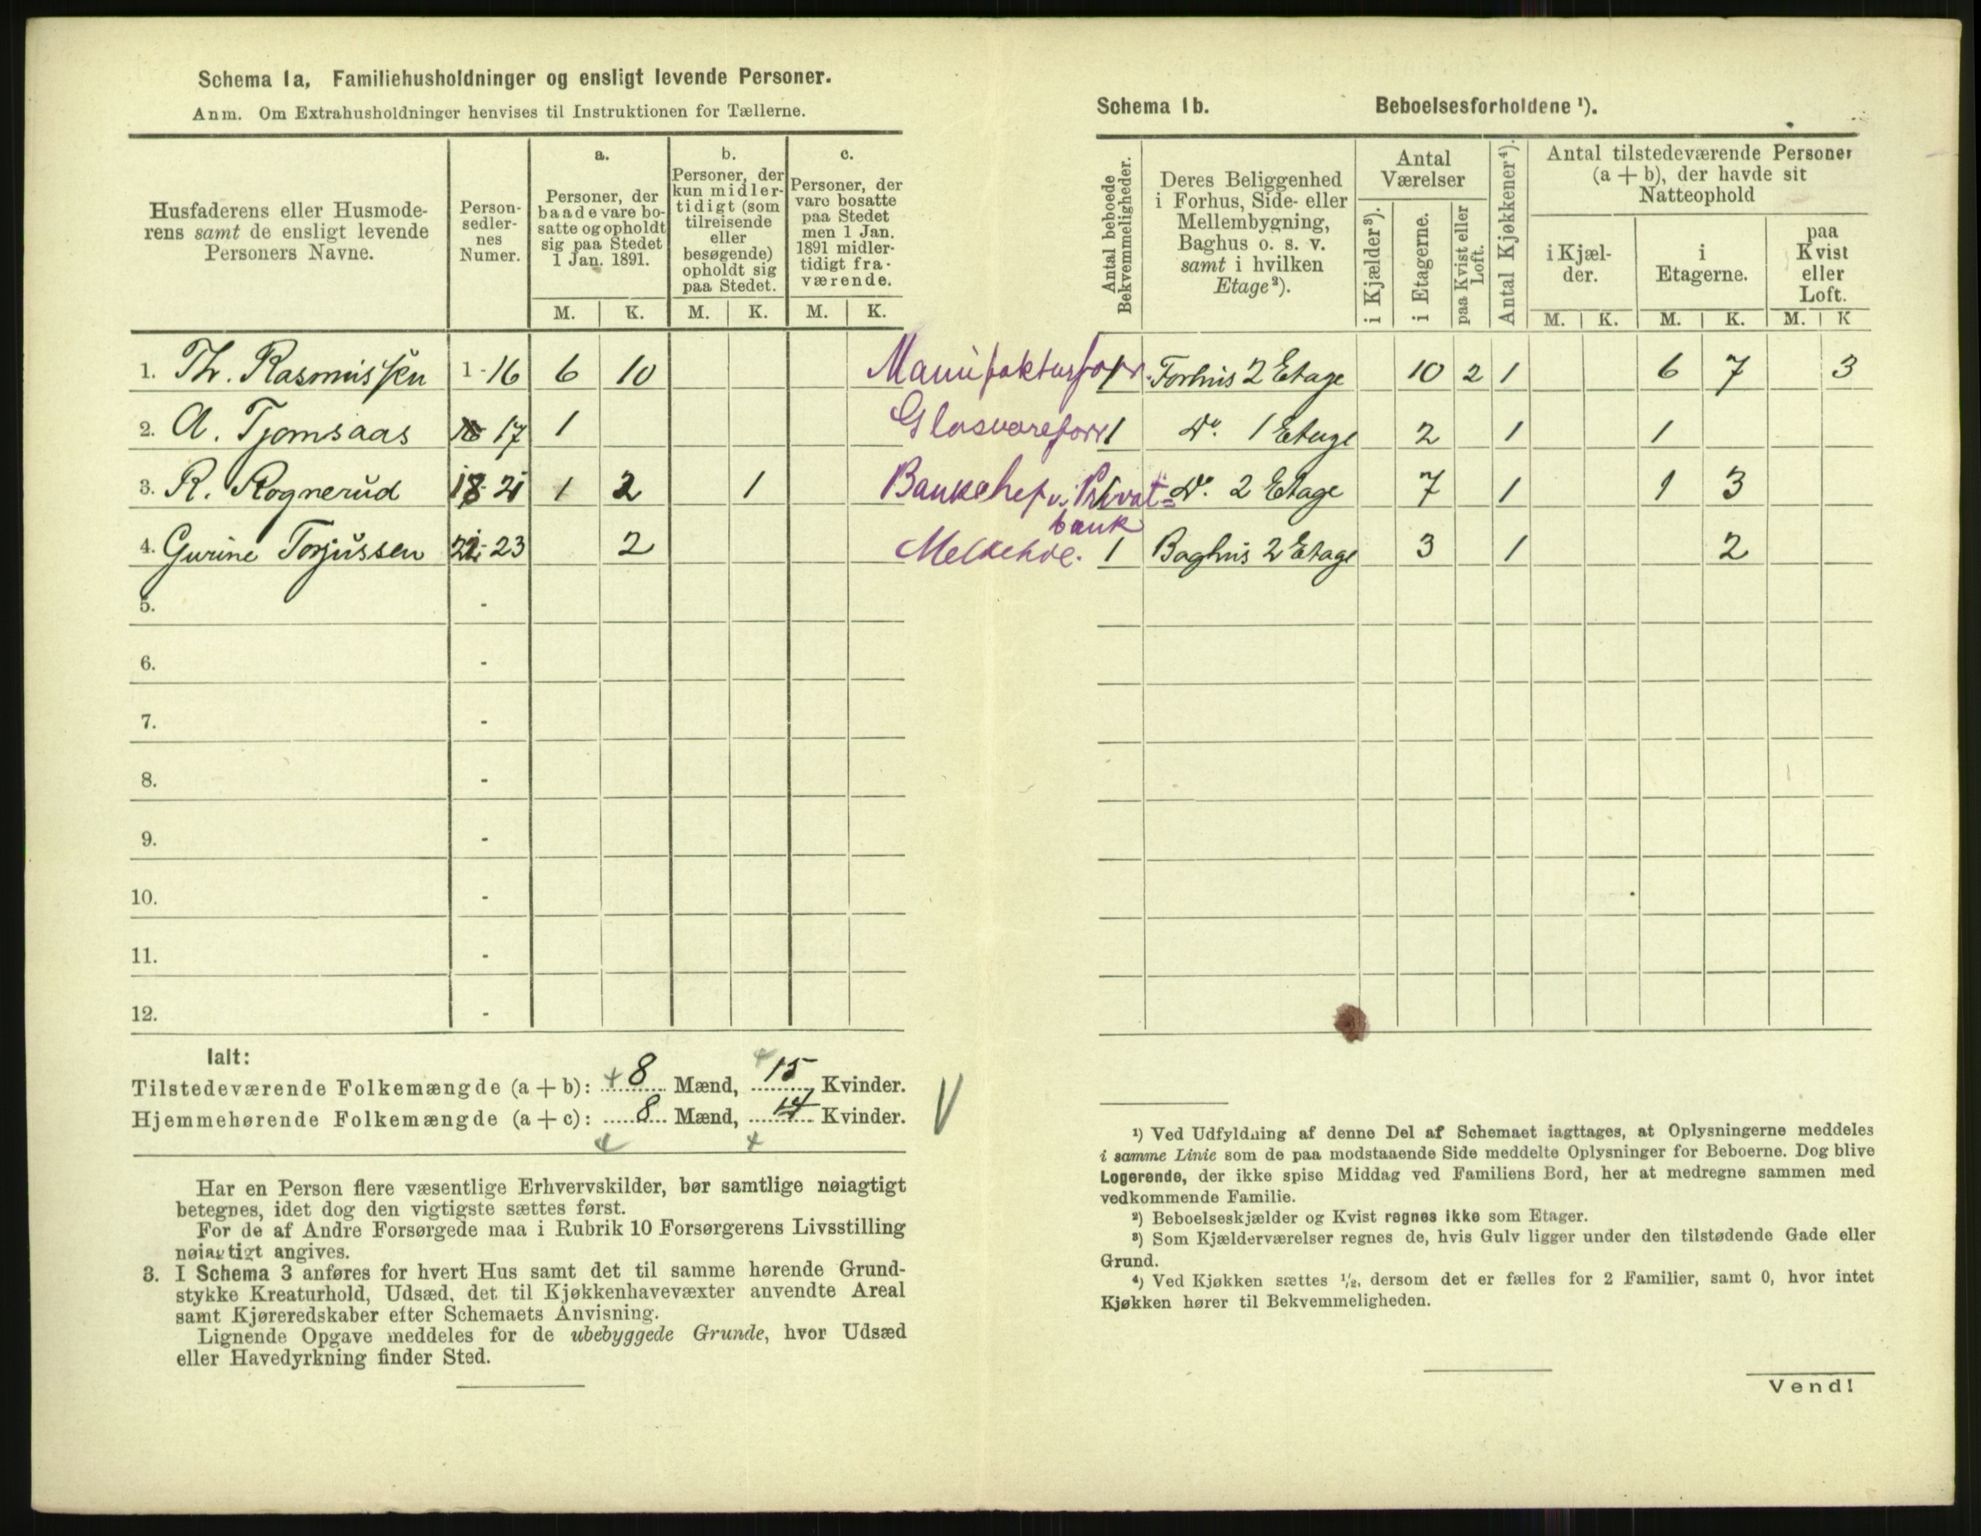 Schema 1a, Familiehusholdninger og ensligt levende Personer.
Anm. Om Extrahusholdninger henvises til Instruktionen for Tællerne.
Husfaderens eller Husmode-
rens samt de ensligt levende
Personers Navne.
Person-
sedler-
nes
Numer.
a.
Personer, der
baade vare bo-
satte og opholdt
sig paa Stedet
1 Jan. 1891.
b.
Personer, der
kun midler-
tidigt (som
tilreisende
eller
besøgende)
opholdt sig
paa Stedet.
c.
Personer, der
vare bosatte
paa Stedet
men 1 Jan.
1891 midler-
tidigt fra-
værende.
M. K. M. K. M. K.
1. Th. Rasmussen 1-16 6 10
2. A. Tjomsaas 17 1
3. R. Rognerud 18-21 1 2 1
4. Gurine Torjussen 22-23 2
5. -
6. -
7. -
8. -
9. -
10. -
11. -
12. -
Ialt:
Tilstedeværende Folkemængde (a + b): 8 Mænd, 15 Kvinder.
Hjemmehørende Folkemængde (a + c): 8 Mænd, 14 Kvinder.
Har en Person flere væsentlige Erhvervskilder, bør samtlige nøiagtigt
betegnes, idet dog den vigtigste sættes først.
For de af Andre Forsørgede maa i Rubrik 10 Forsørgerens Livsstilling
nøiagtigt angives.
3. I Schema 3 anføres for hvert Hus samt det til samme hørende Grund-
stykke Kreaturhold, Udsæd, det til Kjøkkenhavevæxter anvendte Areal
samt Kjøreredskaber efter Schemaets Anvisning.
Lignende Opgave meddeles for de ubebyggede Grunde, hvor Udsæd
eller Havedyrkning finder Sted.
Schema 1b. Beboelsesforholdene ¹).
Antal beboede
Bekvemmeligheder.
Deres Beliggenhed
i Forhus, Side- eller
Mellembygning,
Baghus o. s. v.
samt i hvilken
Etage²).
Antal
Værelser
i Kjælder³).
i Etagerne.
paa Kvist eller
Loft.
Antal Kjøkkener⁴).
Antal tilstedeværende Personer
(a + b), der havde sit
Natteophold
i Kjæl-
der.
i
Etagerne.
paa
Kvist
eller
Loft.
M. K. M. K. M. K
Manufakturforr. 1 Forhus 2 Etage 10 2 1 6 7 3
Glasvareforr 1 Do. 1 Etage 2 1 1
Bankchef v. Privat= 1 Do. 2 Etage 7 1 1 3
bank
Melkehdl. 1 Baghus 2 Etage 3 1 2
¹) Ved Udfyldning af denne Del af Schemaet iagttages, at Oplysningerne meddeles
i samme Linie som de paa modstaaende Side meddelte Oplysninger for Beboerne. Dog blive
Logerende, der ikke spise Middag ved Familiens Bord, her at medregne sammen med
vedkommende Familie.
²) Beboelseskjælder og Kvist regnes ikke som Etager.
³) Som Kjælderværelser regnes de, hvis Gulv ligger under den tilstødende Gade eller
Grund.
⁴) Ved Kjøkken sættes ½, dersom det er fælles for 2 Familier, samt 0, hvor intet
Kjøkken hører til Bekvemmeligheden.
Vend!